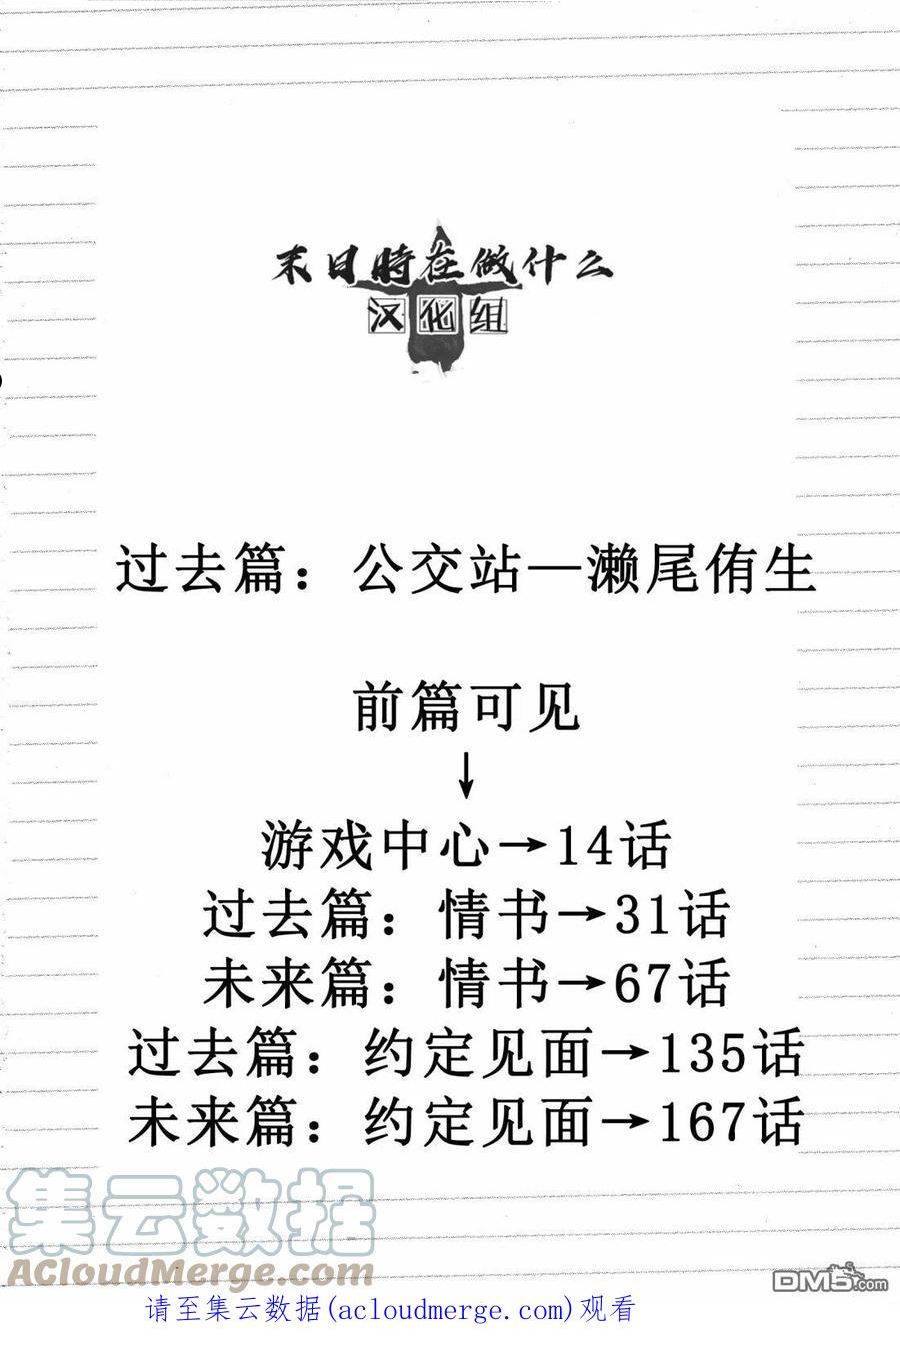 末日時在做什么
汉化组
过去篇：公交站—濑尾侑生
前篇可见
↓
游戏中心→14话
过去篇：情书→31话
未来篇：情书→67话
过去篇：约定见面→135话
未来篇：约定见面→167话
集云数据
AcloudMerge.com
请至集云数据(acloudmerge.com)观看
DM5.com